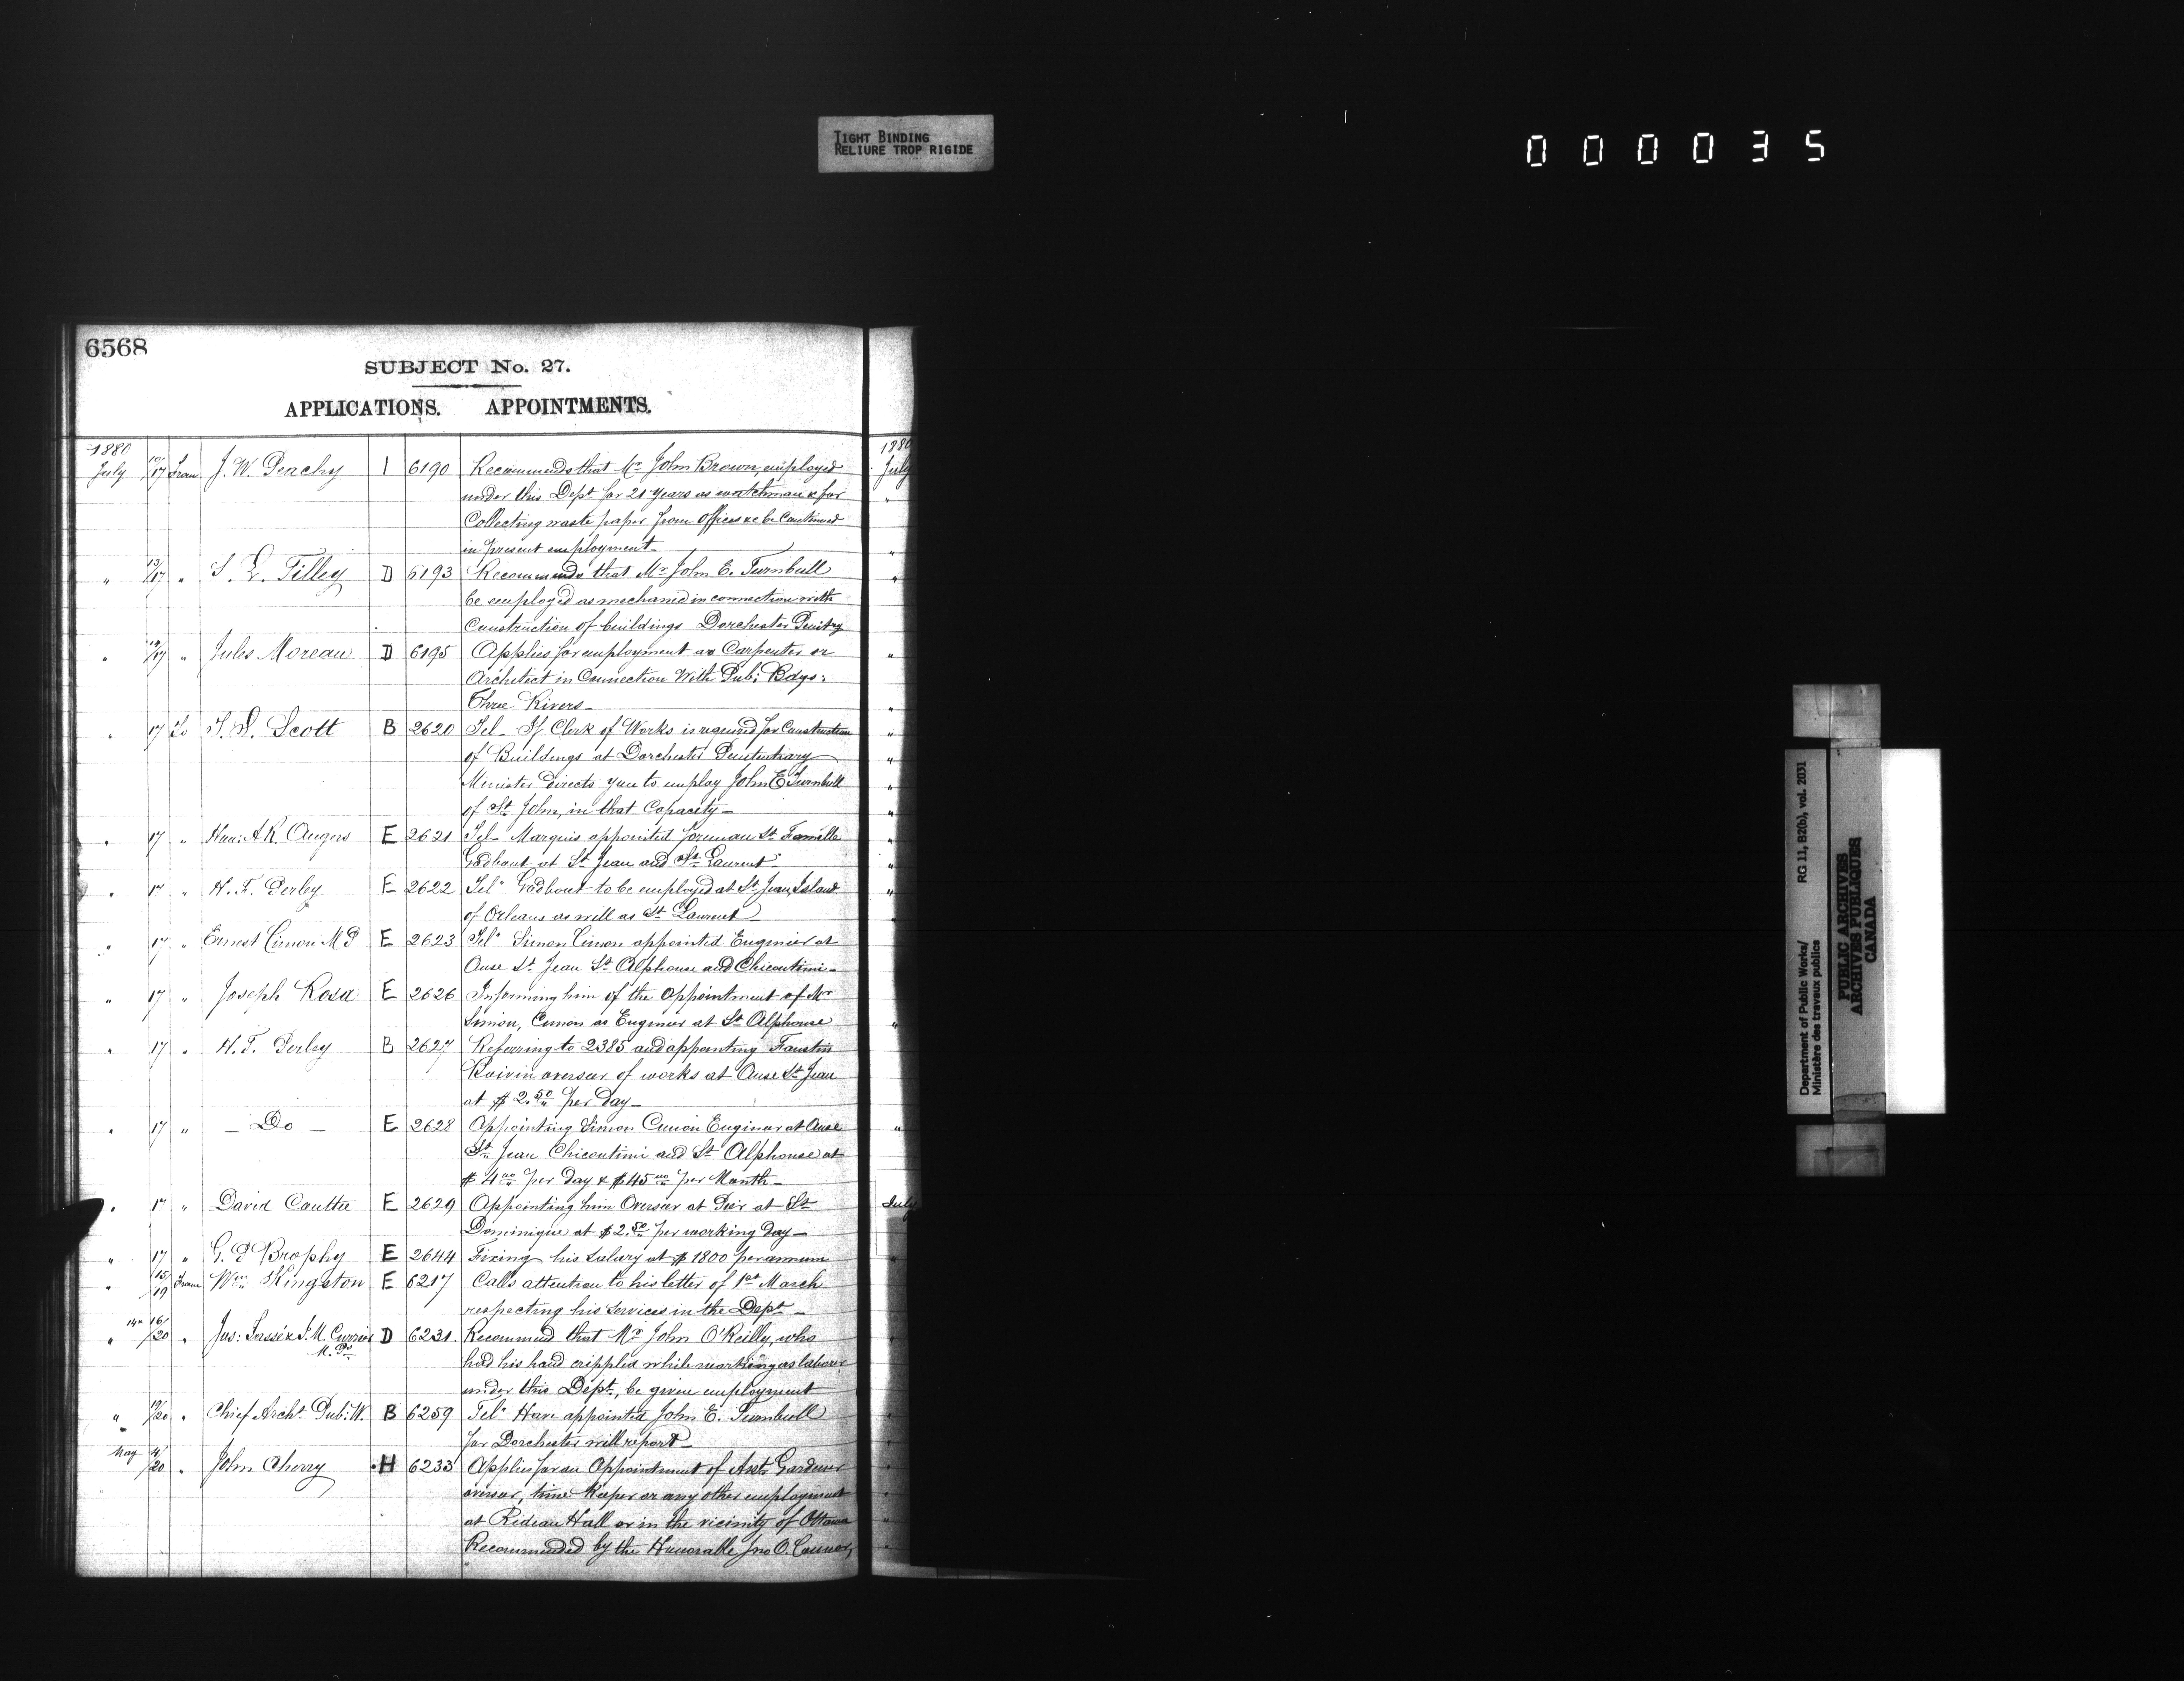 TIGHT BINDING
RELIURE TROP RIGIDE
000035
6568
SUBJECT No. 27.
APPLICATIONS. APPOINTMENTS.
1880
July 10/17 From J. W. Peachy I 6190 Recommends that Mr. John Brown, employed
under this Dept. for 21 years as watchman & for
Collecting waste paper from Offices &c be Continued
in present employment.
" 13/17 " S. L. Tilley D 6193 Recommends that Mr John E. Turnbull
be employed as mechanic in connection with
Construction of buildings Dorchester Penitry
" 14/17 " Jules Moreau D 6195 Applies for employment as Carpenter or
Architect in Connection With Pub: Bdgs:
Three Rivers
" 17 To T. S. Scott B 2620 Tel- If Clerk of Works is required for Construction
of Buildings at Dorchester Penitentiary
Minister Directs you to employ John E Turnbull
of St. John, in that Capacity
" 17 " Hon: A.R. Angers E 2621 Tel- Marquis appointed foreman St. Famille
Godbout at St. Jean and St. Laurent
" 17 " H. F. Perley E 2622 Tel: Godbout to be employed at St. Jean, Island
of Orleans as will as St. Laurent
" 17 " Ernest Cimon MP E 2623 Tel: Simon Cimon appointed Engineer at
Anse St. Jean St. Alphonse and Chicoutimi
" 17 " Joseph Rosa E 2626 Informing him of the Appointment of Mr
Simon, Cimon as Engineer at St. Alphonse
" 17 " H. F. Perley B 2627 Referring to 2385 and appointing Faustin
Boivin overseer of works at Anse St. Jean
at $2.50 per Day
" 17 " - Do - E 2628 Appointing Simon Cimon Engineer at Anse
St. Jean Chicoutimi and St Alphonse at
$4.00 per day & $45.00 per Month
" 17 " David Cauttee E 2629 Appointing him Overseer at Pier at St
Dominique at $2.50 per working Day
" 17 " G. P Brophy E 2644 Fixing his Salary at $1800 per annum
" 15/19 From Wm. Kingston E 6217 Calls attention to his letter of 1st March
respecting his Services in the Dept
" 14 & 16/20 " Jos: Tassé & J. M. Currier D 6231. Recommend that Mr John O'Reilly, who
M. Ps
had his hand crippled while working as laborer
under this Dept., be given employment
" 19/20 " Chief Archt. Pub: W. B 6259 Tel: Have appointed John E. Turnbull
for Dorchester will report
May 4/20 " John Cherry H 6233 Applies for an Appointment of Asst. Gardener
overseer, time keeper or any other employment
at Rideau Hall or in the vicinity of Ottawa
Recommended by the Honorable Jno O. Connor,
1880
July
July
Department of Public Works/ RG 11, B2(b), vol. 2031
Ministère des travaux publics
PUBLIC ARCHIVES
ARCHIVES PUBLIQUES
CANADA